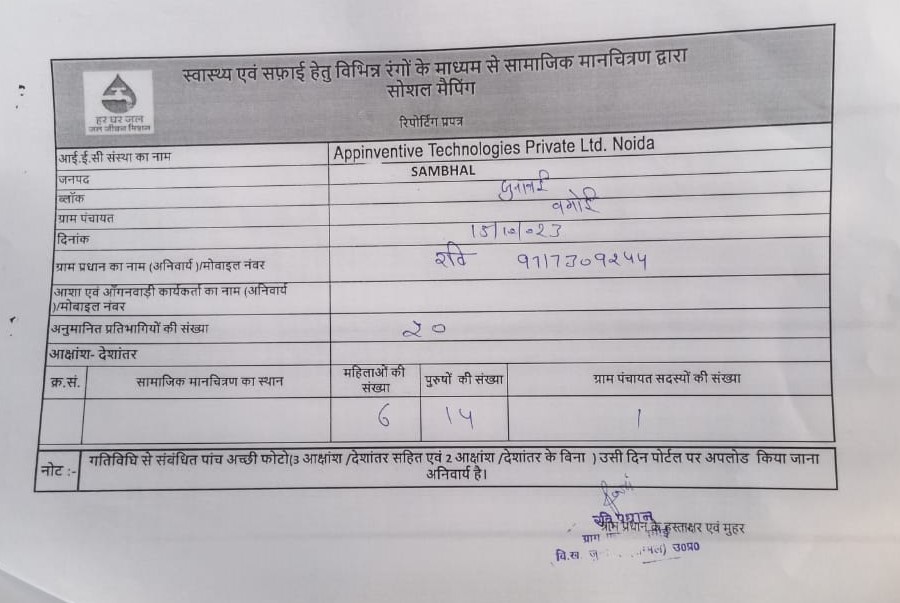 स्वास्थ्य एवं सफ़ाई हेतु विभिन्न रंगों के माध्यम से सामाजिक मानचित्रण द्वारा
सोशल मैपिंग
रिपोर्टिंग प्रपत्र
हर घर जल
जल जीवन मिशन
आई.ई.सी संस्था का नाम Appinventive Technologies Private Ltd. Noida
जनपद SAMBHAL
ब्लॉक जुनावई
ग्राम पंचायत
दिनांक 15/10/023
ग्राम प्रधान का नाम (अनिवार्य )/मोबाइल नंबर रवि 9717309244
आशा एवं आँगनवाड़ी कार्यकर्ता का नाम (अनिवार्य
)/मोबाइल नंबर
अनुमानित प्रतिभागियों की संख्या २०
आक्षांश- देशांतर
क्र.सं. सामाजिक मानचित्रण का स्थान महिलाओं की संख्या पुरुषों की संख्या ग्राम पंचायत सदस्यों की संख्या
6 14 1
नोट :- गतिविधि से संबंधित पांच अच्छी फोटो(3 आक्षांश /देशांतर सहित एवं 2 आक्षांश /देशांतर के बिना ) उसी दिन पोर्टल पर अपलोड किया जाना
अनिवार्य है।
रवि प्रधान
ग्राम प्रधान के हस्ताक्षर एवं मुहर
ग्राम
वि.ख. उ०प्र०